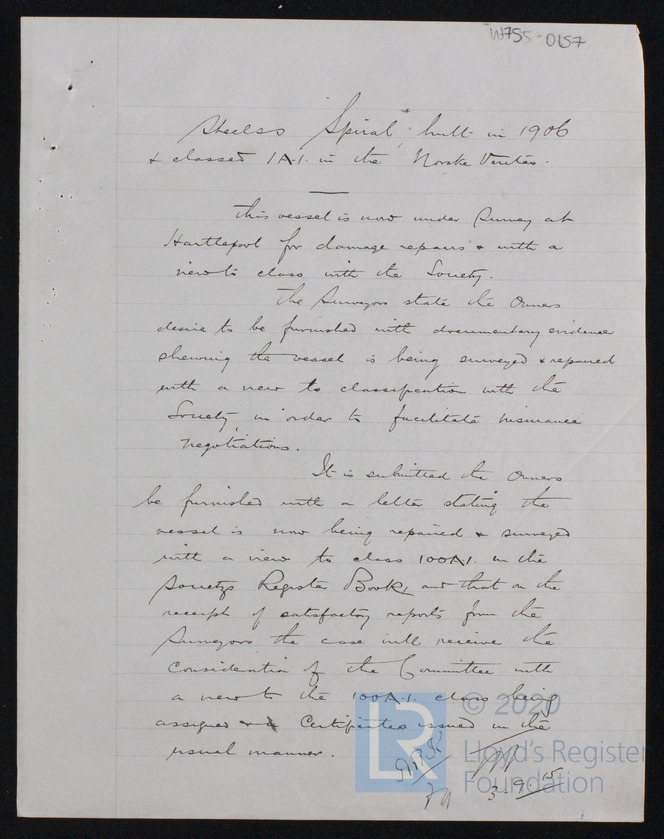 W755-0157
"Spiral" built in 1906
& classed 1A.1. in the Norske Veritas.
This vessel is now under survey at
Hartlepool for damage repairs & with a
view to class with the Society.
The Surveyors state the Owners
desire to be furnished with documentary evidence
shewing the vessel is being surveyed & repaired
with a view to classification with the
Society, in order to facilitate insurance
negotiations.
It is submitted the Owners
be furnished with a letter stating the
vessel is now being repaired & surveyed
with a view to class 100A1. in the
Societys Register Book, and that on the
receipt of satisfactory reports from the
Surveyors the case will receive the
Consideration of the Committee with
a view to the 100A.1. class being
assigned & Certificates issued in the
usual manner.
3-9-15
LR
© 2020
Lloyd's Register
Foundation